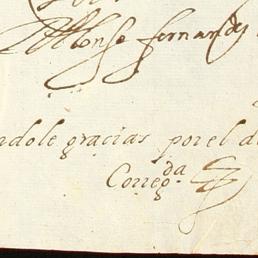 Alfonso fernandes
ndole gracias por el d
Correg.da